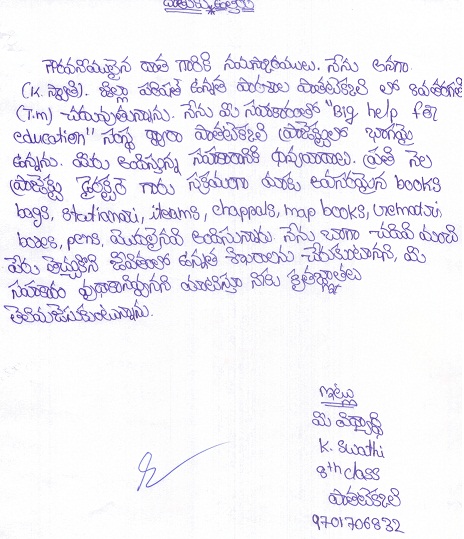 గౌరవనీయులైన దాత గారికి నమస్కారములు. నేను అనగా
(K. స్వాతి). జిల్లా పరిషత్ ఉన్నత పాఠశాల పాతటెక్కలి లో 8వ తరగతి
(T.m) చదువుతున్నాను. నేను మీ సహకారంతో "Big help for
education" సంస్థ ద్వారా పాతటెక్కలి ప్రాజెక్టులో భాగమై
ఉన్నాను. మీరు అందిస్తున్న సహకారానికి ధన్యవాదాలు. ప్రతి నెల
ప్రాజెక్టు డైరెక్టర్ గారు సక్రమంగా మాకు అవసరమైన books
bags, stationari, iteams, chappals, map books, Jremati
boxes, pens, మొదలైనవి అందిస్తున్నారు. నేను బాగా చదివి మంచి
పేరు తెచ్చుకొని జీవితంలో ఉన్నత శిఖరాలను చేరుకుంటానని, మీ
సహకారం వృధాకానివ్వనని యాచిస్తూ నీకు కృతజ్ఞతలు
తెలియజేసుకుంటున్నాను.
ఇట్లు
మీ విద్యార్థి
K. Swathi
8th class
పాతటెక్కలి
9701706832